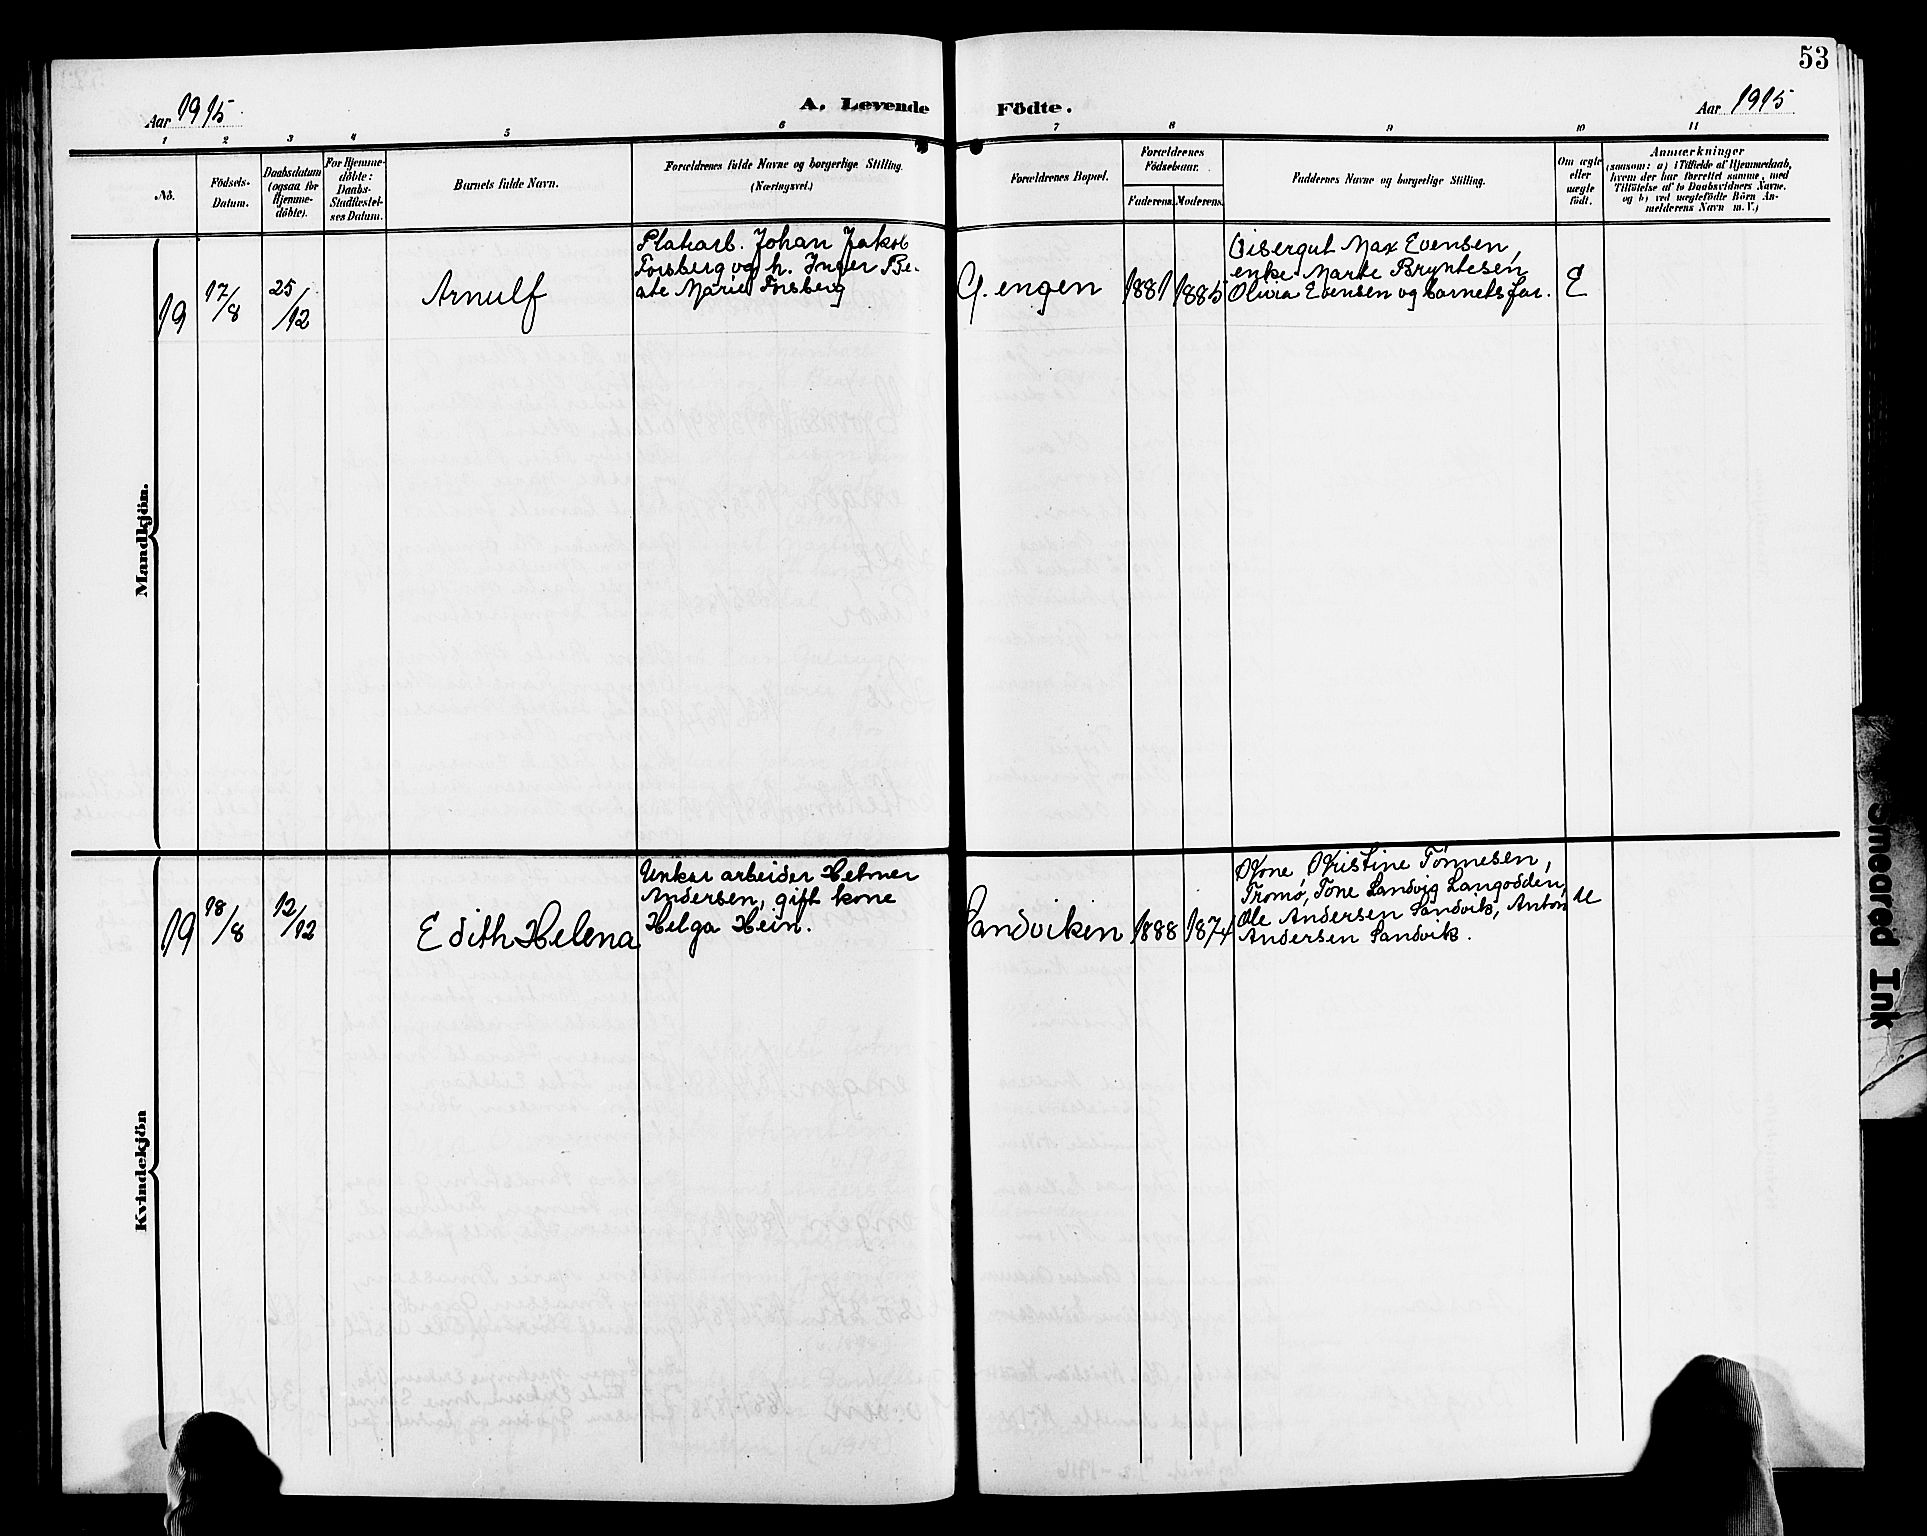 53
Aar 1915.
A. Levende Födte.
Aar 1915
1 2 3 4 5 6 7 8 9 10 11
No.
Födsels-
Datum.
Daabsdatum
(ogsaa for
Hjemme-
döbte).
For Hjemme-
döbte:
Daabs-
Stadfæstel-
ses Datum.
Barnets fulde Navn.
Forældrenes fulde Navne og borgerlige Stilling.
(Næringsvei.)
Forældrenes Bopæl.
Forældrenes
Födselsaar.
Faderens. Moderens.
Faddernes Navne og borgerlige Stilling.
Om ægte
eller
uægte
födt.
Anmærkninger
(saasom: a) i Tilfælde af Hjemmedaab,
hvem der har forrettet samme, med
Tilföielse af to Daabsvidners Navne.
og b) ved uægtefödte Börn An-
melderens Navn m. V.)
Mandkjön.
19
17/8
25/12
Arnulf
Platarb. Johan Jakob
Forsberg og h. Inger Be-
ate Marie Forsberg
G. engen
1881
1885
Visergut Max Evensen,
enke Marte Bryntesen,
Olivia Evensen og barnets far.
E
Kvindekjön
19
18/8
12/12
Edith Helena
Unkar arbeider Helmer
Andersen, gift kone
Helga Hein.
Sandviken
1888
1874
Kone Kristine Tönnesen,
Tromø, Tone Sandvig Langodden,
Ole Andersen Sandvik, Anton
Andersen Sandvik.
U
Smeared Ink